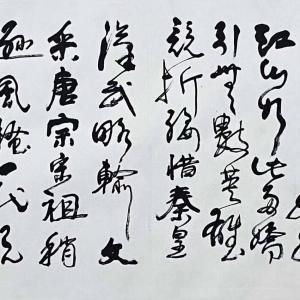 江山如此多嬌
引無數英雄
競折腰惜秦皇
漢武略輸文
采唐宗宋祖稍
遜風騷一代天